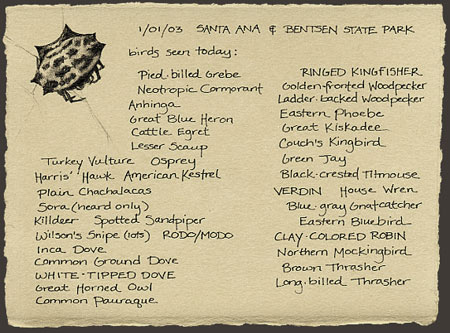 1/01/03 SANTA ANA & BENTSEN STATE PARK
birds seen today:
Pied-billed Grebe
Neotropic Cormorant
Anhinga
Great Blue Heron
Cattle Egret
Lesser Scaup
Turkey Vulture Osprey
Harris' Hawk American Kestrel
Plain Chachalacas
Sora (heard only)
Killdeer Spotted Sandpiper
Wilson's Snipe (lots) RODO/MODO
Inca Dove
Common Ground Dove
WHITE-TIPPED DOVE
Great Horned Owl
Common Pauraque
RINGED KINGFISHER
Golden-fronted Woodpecker
Ladder-backed Woodpecker
Eastern Phoebe
Great Kiskadee
Couch's Kingbird
Green Jay
Black-crested Titmouse
VERDIN House Wren
Blue-gray Gnatcatcher
Eastern Bluebird
CLAY-COLORED ROBIN
Northern Mockingbird
Brown Thrasher
Long-billed Thrasher